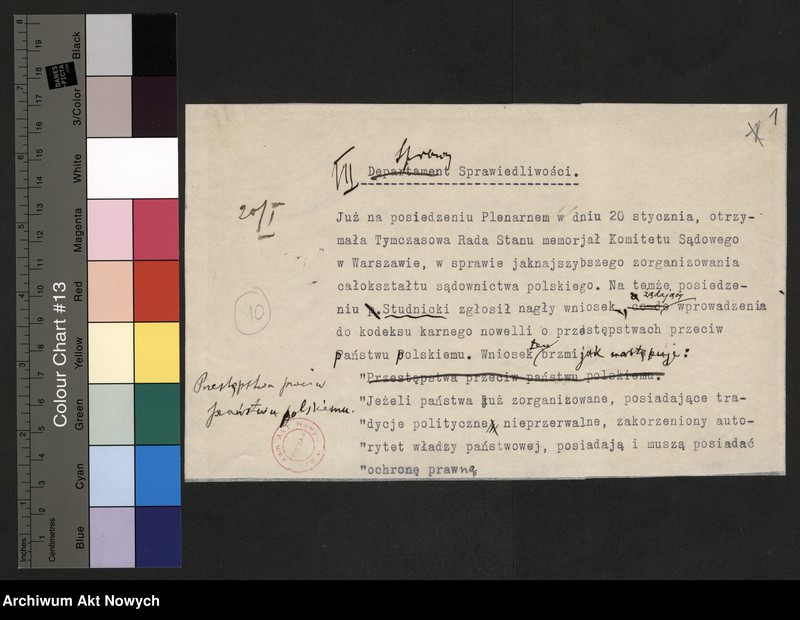 1
VII Sprawy
Departament Sprawiedliwości.
20/I
Już na posiedzeniu Plenarnem w dniu 20 stycznia, otrzy-
mała Tymczasowa Rada Stanu memorjał Komitetu Sądowego
w Warszawie, w sprawie jaknajszybszego zorganizowania
całokształtu sądownictwa polskiego. Na temże posiedze-
żądający
niu p.Studnicki zgłosił nagły wniosek, co do wprowadzenia
10
do kodeksu karnego nowelli o przestępstwach przeciw
państwu polskiemu. Wniosek ten brzmi jak następuje:
"Przestępstwa przeciw państwu polskiemu.
Przestępstwa przeciw
państwu polskiemu.
"Jeżeli państwa już zorganizowane, posiadające tra-
"dycje polityczne nieprzerwalne, zakorzeniony auto-
"rytet władzy państwowej, posiadają i muszą posiadać
"ochronę prawną
Colour Chart #13
Blue
Cyan
Green
Yellow
Red
Magenta
White
3/Color
Black
Inches
Centimetres
1 2 3 4 5 6 7 8 9 10 11 12 13 14 15 16 17 18 19
DANES
PICTA
Archiwum Akt Nowych